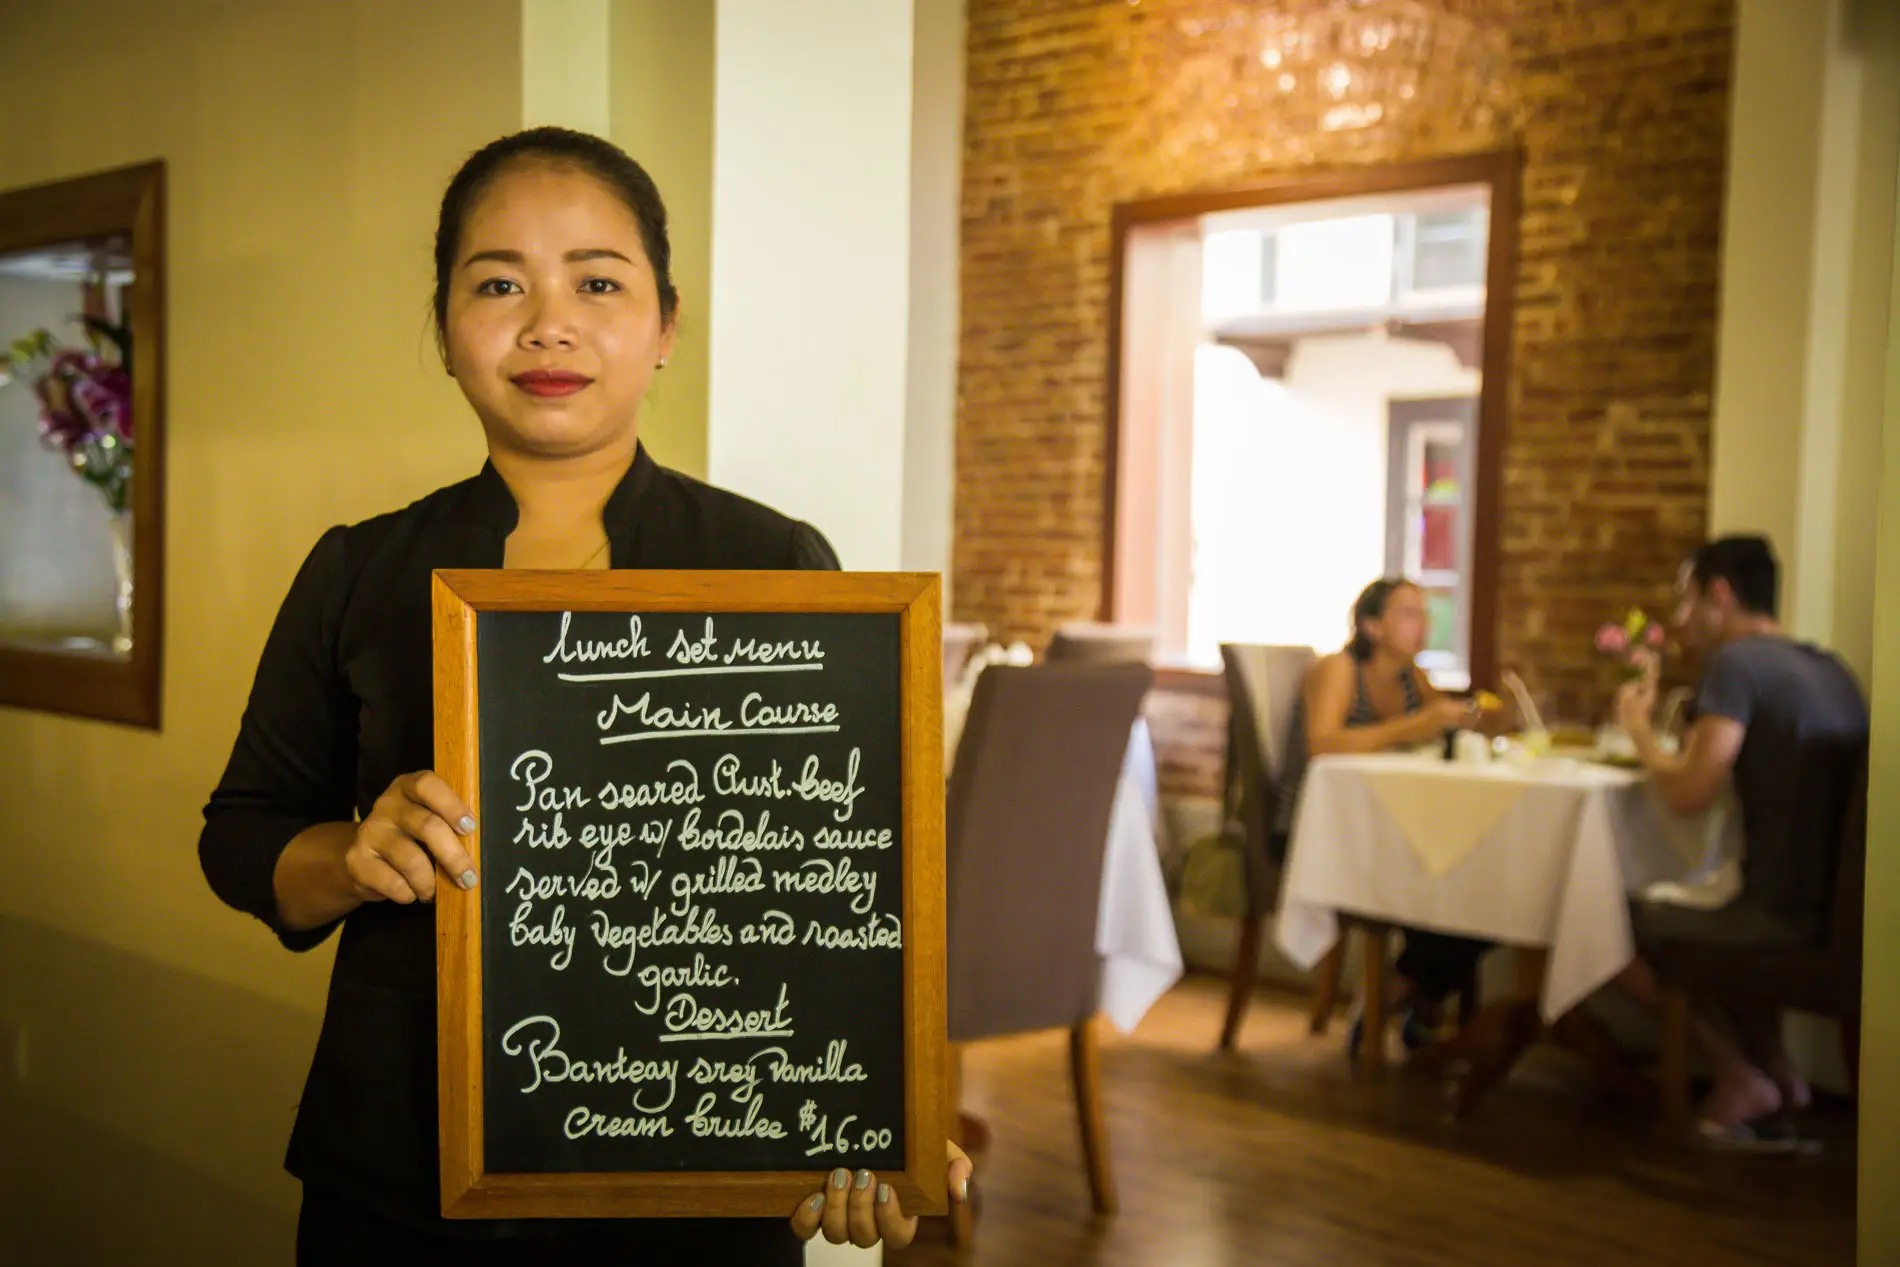 Lunch set Menu
Main Course
Pan seared Aust. beef
rib eye w/ bordelais sauce
served w/ grilled medley
baby vegetables and roasted
garlic.
Dessert
Banteay srey vanilla
cream brulee $16.00